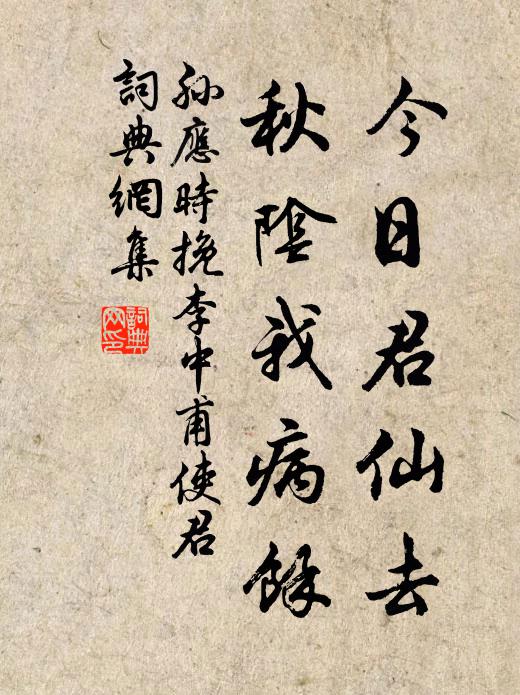 今日君仙去
秋陰我病餘
孫應時挽李中甫使君
詞典網集
詞典網印